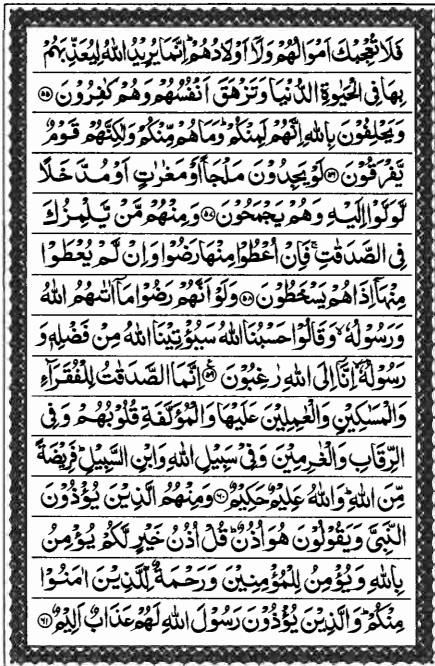 فَلَا تُعْجِبْكَ اَمْوَالُهُمْ وَلَآ اَوْلَادُهُمْ ؕ اِنَّمَا یُرِیْدُ اللّٰهُ لِیُعَذِّبَهُمْ
بِهَا فِی الْحَیٰوةِ الدُّنْیَا وَتَزْهَقَ اَنْفُسُهُمْ وَهُمْ كٰفِرُوْنَ ﴿۵۵﴾
وَیَحْلِفُوْنَ بِاللّٰهِ اِنَّهُمْ لَمِنْكُمْ ؕ وَمَا هُمْ مِّنْكُمْ وَلٰكِنَّهُمْ قَوْمٌ
یَّفْرَقُوْنَ ﴿۵۶﴾ لَوْ یَجِدُوْنَ مَلْجَاً اَوْ مَغٰرٰتٍ اَوْ مُدَّخَلًا
لَّوَلَّوْا اِلَیْهِ وَهُمْ یَجْمَحُوْنَ ﴿۵۷﴾ وَمِنْهُمْ مَّنْ یَّلْمِزُكَ
فِی الصَّدَقٰتِ ۚ فَاِنْ اُعْطُوْا مِنْهَا رَضُوْا وَاِنْ لَّمْ یُعْطَوْا
مِنْهَاۤ اِذَا هُمْ یَسْخَطُوْنَ ﴿۵۸﴾ وَلَوْ اَنَّهُمْ رَضُوْا مَاۤ اٰتٰىهُمُ اللّٰهُ
وَرَسُوْلُهٗ ۙ وَقَالُوْا حَسْبُنَا اللّٰهُ سَیُؤْتِیْنَا اللّٰهُ مِنْ فَضْلِهٖ وَ
رَسُوْلُهٗۤ ۙ اِنَّاۤ اِلَى اللّٰهِ رٰغِبُوْنَ ﴿۵۹﴾ اِنَّمَا الصَّدَقٰتُ لِلْفُقَرَآءِ
وَالْمَسٰكِیْنِ وَالْعٰمِلِیْنَ عَلَیْهَا وَالْمُؤَلَّفَةِ قُلُوْبُهُمْ وَفِی
الرِّقَابِ وَالْغٰرِمِیْنَ وَفِیْ سَبِیْلِ اللّٰهِ وَابْنِ السَّبِیْلِ ؕ فَرِیْضَةً
مِّنَ اللّٰهِ ؕ وَاللّٰهُ عَلِیْمٌ حَكِیْمٌ ﴿۶۰﴾ وَمِنْهُمُ الَّذِیْنَ یُؤْذُوْنَ
النَّبِیَّ وَیَقُوْلُوْنَ هُوَ اُذُنٌ ؕ قُلْ اُذُنُ خَیْرٍ لَّكُمْ یُؤْمِنُ
بِاللّٰهِ وَیُؤْمِنُ لِلْمُؤْمِنِیْنَ وَرَحْمَةٌ لِّلَّذِیْنَ اٰمَنُوْا
مِنْكُمْ ؕ وَالَّذِیْنَ یُؤْذُوْنَ رَسُوْلَ اللّٰهِ لَهُمْ عَذَابٌ اَلِیْمٌ ﴿۶۱﴾